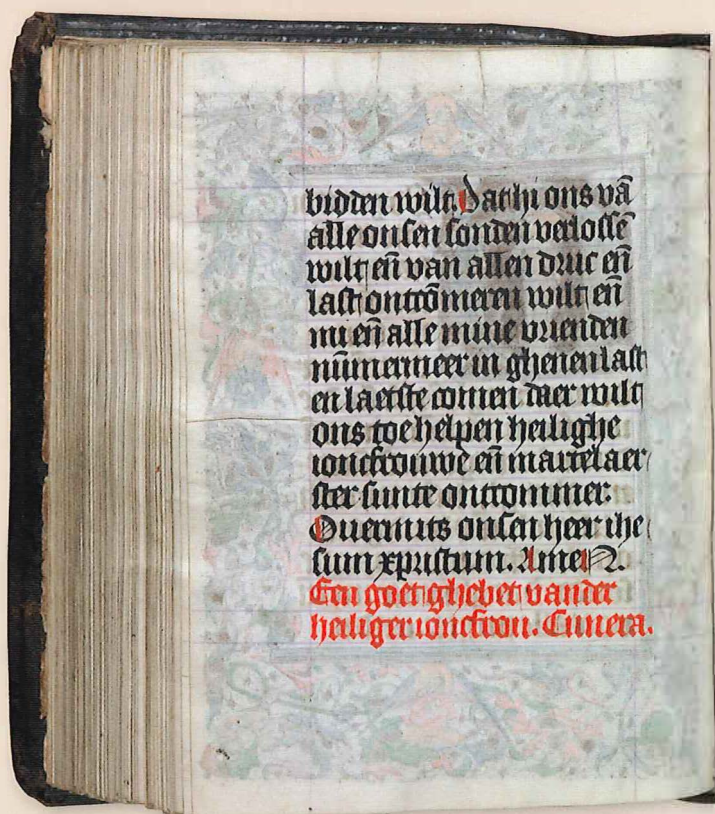 bidden wilt. Dat hi ons vā
alle onsen sonden verlossē
wilt eñ van allen druc eñ
last ontcōmeren wilt eñ
mi eñ alle mine vrienden
nūmermeer in ghenen last
en laetste comen daer wilt
ons toe helpen heilighe
ioncfrouwe eñ martelaer
ster sunte ontcommer.
Ouermits onsen heer ihe
sum xpristum. Amen.
Een goet ghebet vander
heiliger ioncfrou. Cunera.